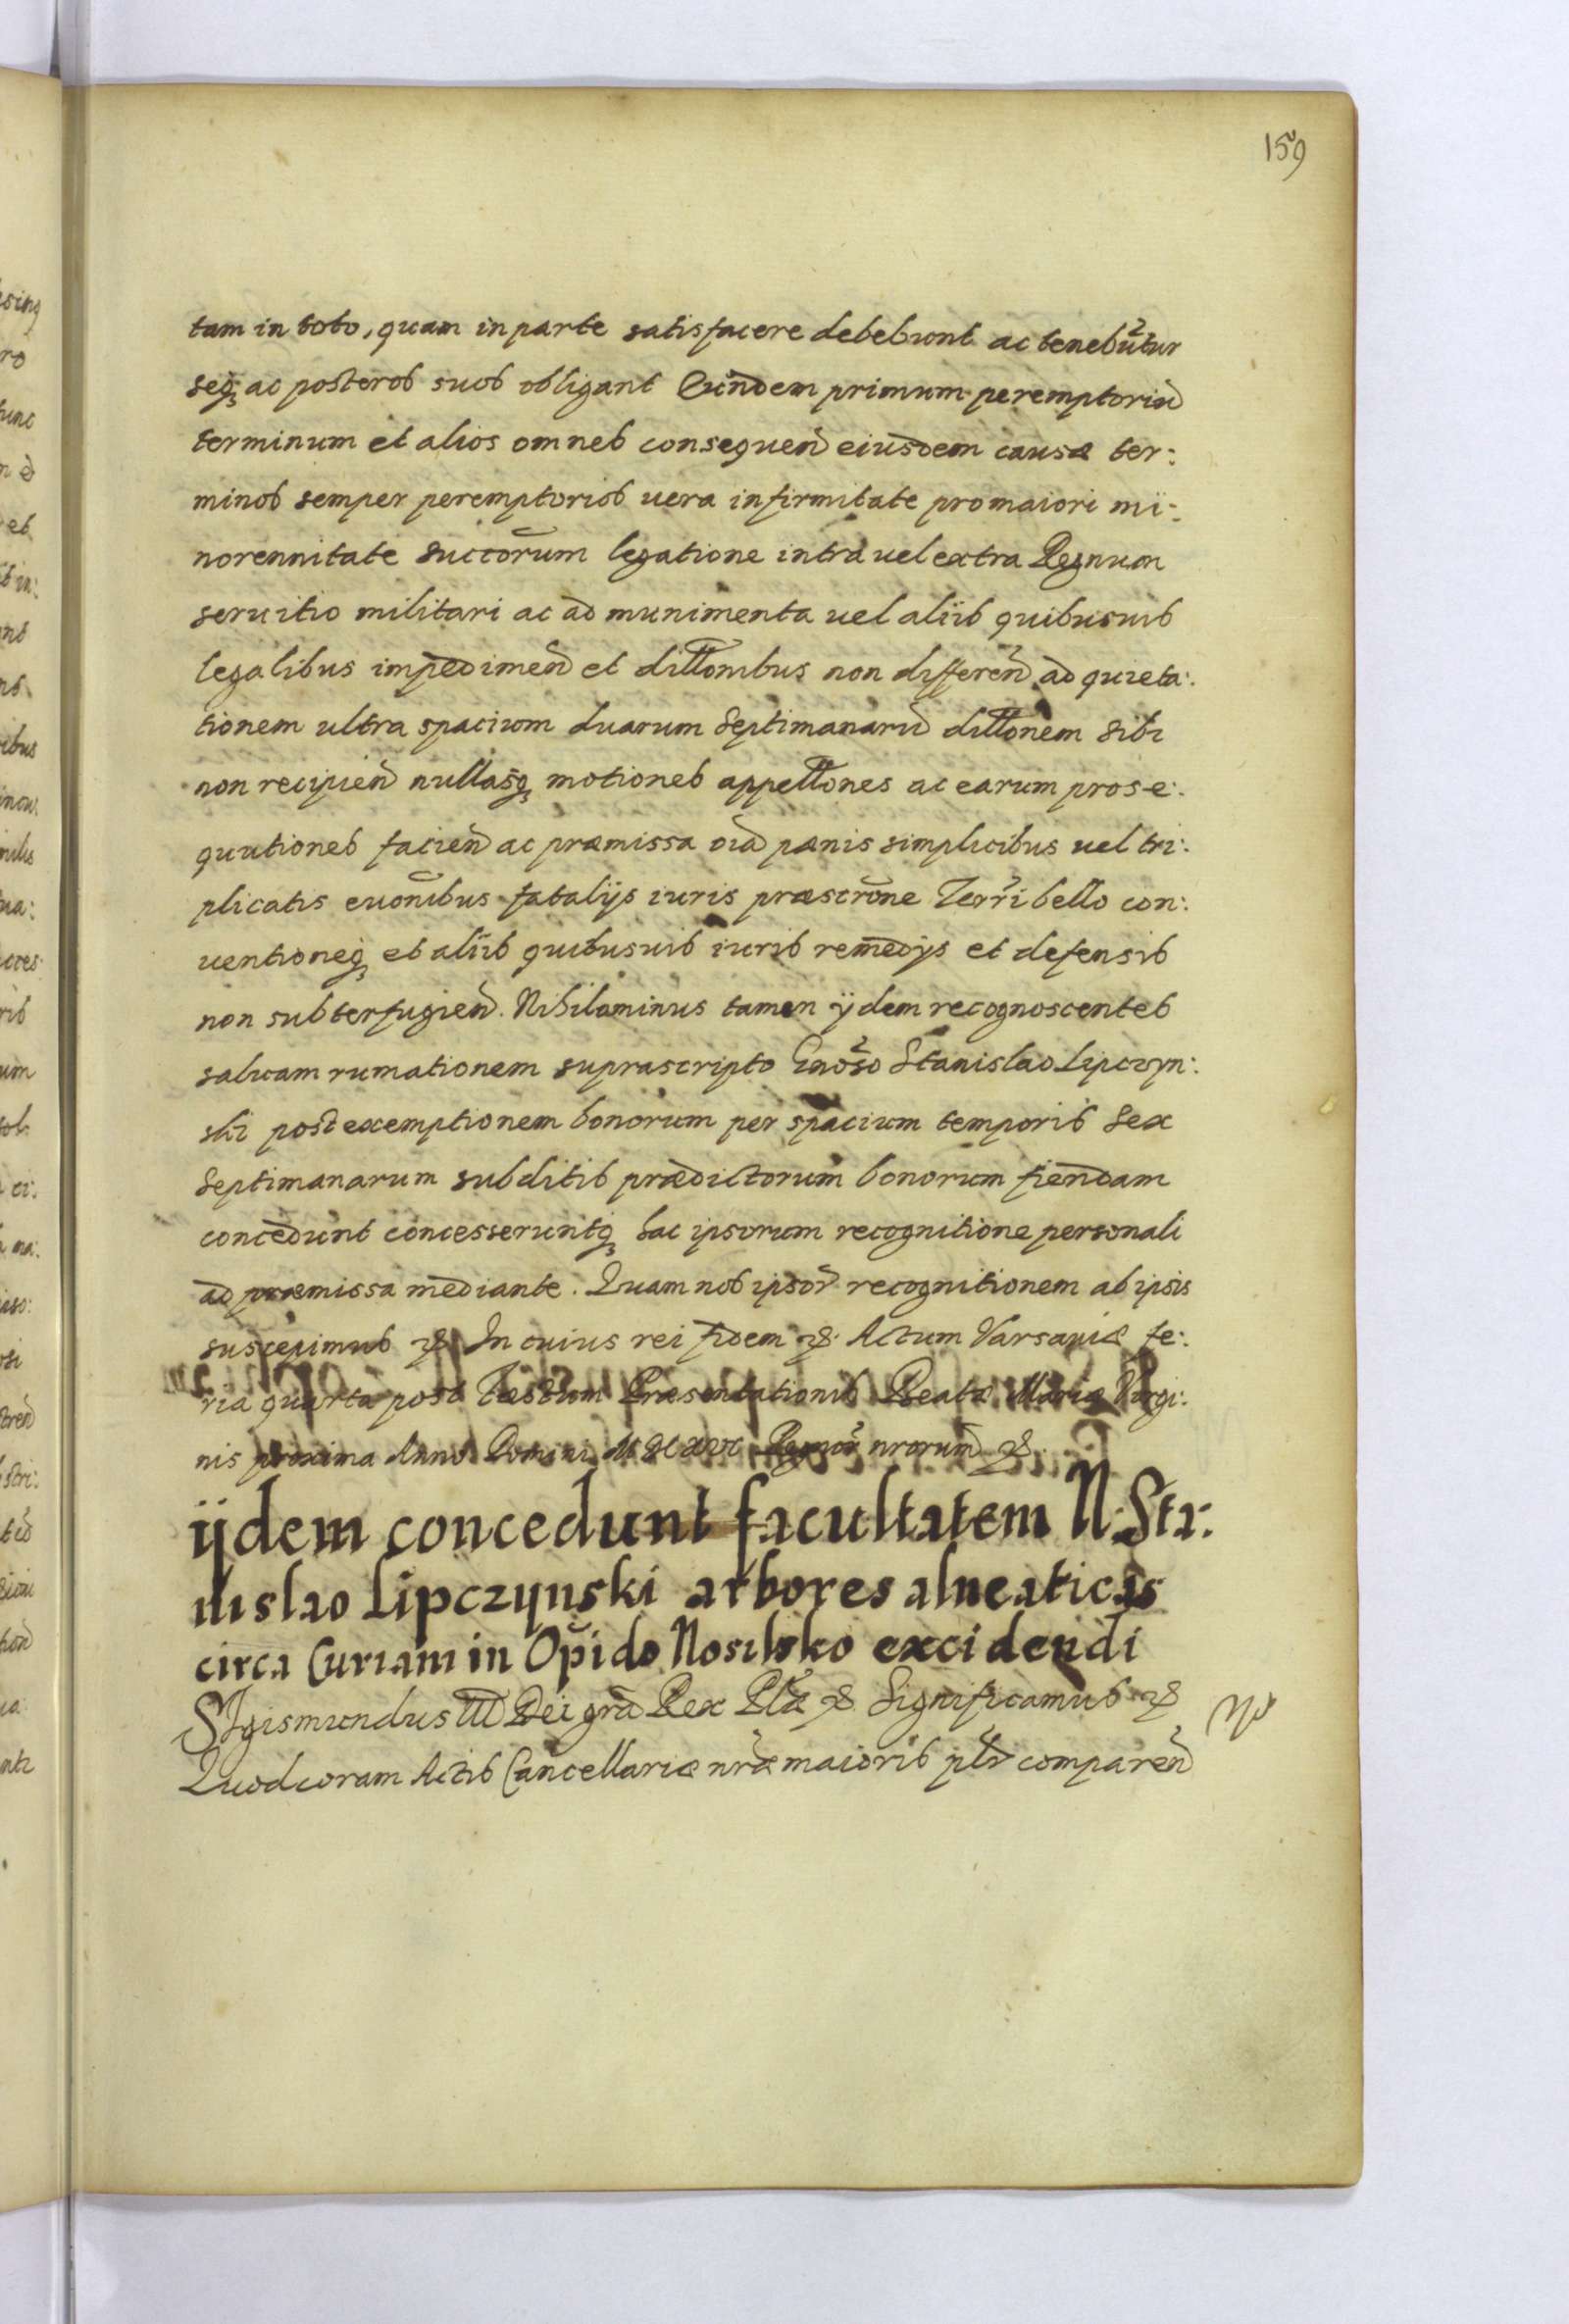 159
tam in toto, quam in parte satisfacere debebunt ac tenebūtur
seq̨ ac posteros suos obligant Eundem primum peremptoriū
terminum et alios omnes consequeñ eiusdem causæ ter:
minos semper peremptorios uera infirmitate pro maiori mi:
norennitate succorum legatione intra uel extra Regnum
seruitio militari ac ad munimenta uel aliis quibusuis
legalibus impedimeñ et dillonibus non differeñ ad quieta:
tionem ultra spacium duarum Septimanarū dillonem sibi
non recipieñ nullasq̨ motiones appellones ac earum prose:
qutiones facieñ ac præmissa oīa pænis simplicibus uel tri:
plicatis euonibus fatalijs iuris præscrōne Terri bello con:
uentioneq̨ et aliis quibusuis iuris remedijs et defensis
non subterfugieñ. Nihilominus tamen ijdem recognoscentes
saluam rumationem suprascripto Gnoso Stanislao Lipczyn:
ski post exemptionem bonorum per spacium temporis Sex
Septimanarum subditis prædictorum bonorum fiendam
concedunt concesseruntq̨ hac ipsorum recognitione personali
ad præmissa mediante. Quam nos ipsor̄ recognitionem ab ipsis
suscepimus &. In cuius rei fidem &. Actum Varsauiæ fe:
ria quarta post Fæstum Præsentationis Beatæ Mariæ Virgi:
nis proxima Anno Domini Regnor̄ nrorum &.
ijdem concedunt facultatem N: Sta:
nislao Lipczynski arbores alneaticas
circa Curiam in Opido Nosilsko excidendi
SIgismundus III Dei gra Rex Plæ & Significamus &
Quod coram Actis Cancellariæ nræ maioris plr compareñ